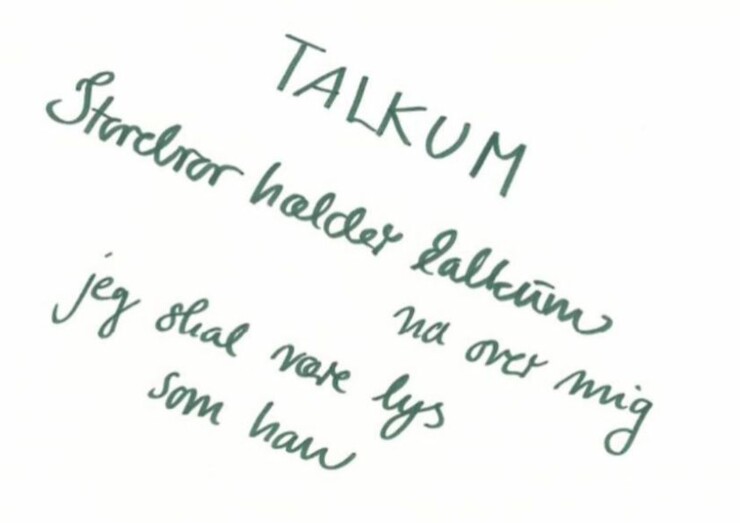 TALKUM
Storebror hælder talkum
over mig
jeg skal være lys
som han